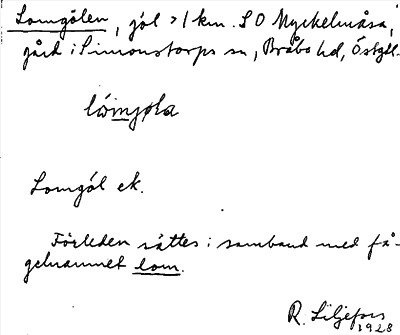 Lomgölen, göl >1 km. SO Myckelmåsa,
gård i Simonstorps sn, Bråbo hd, Östgll.
Lomgöl ek.
Förleden sättes i samband med få-
gelnamnet lom.
R. Liljefors
1928